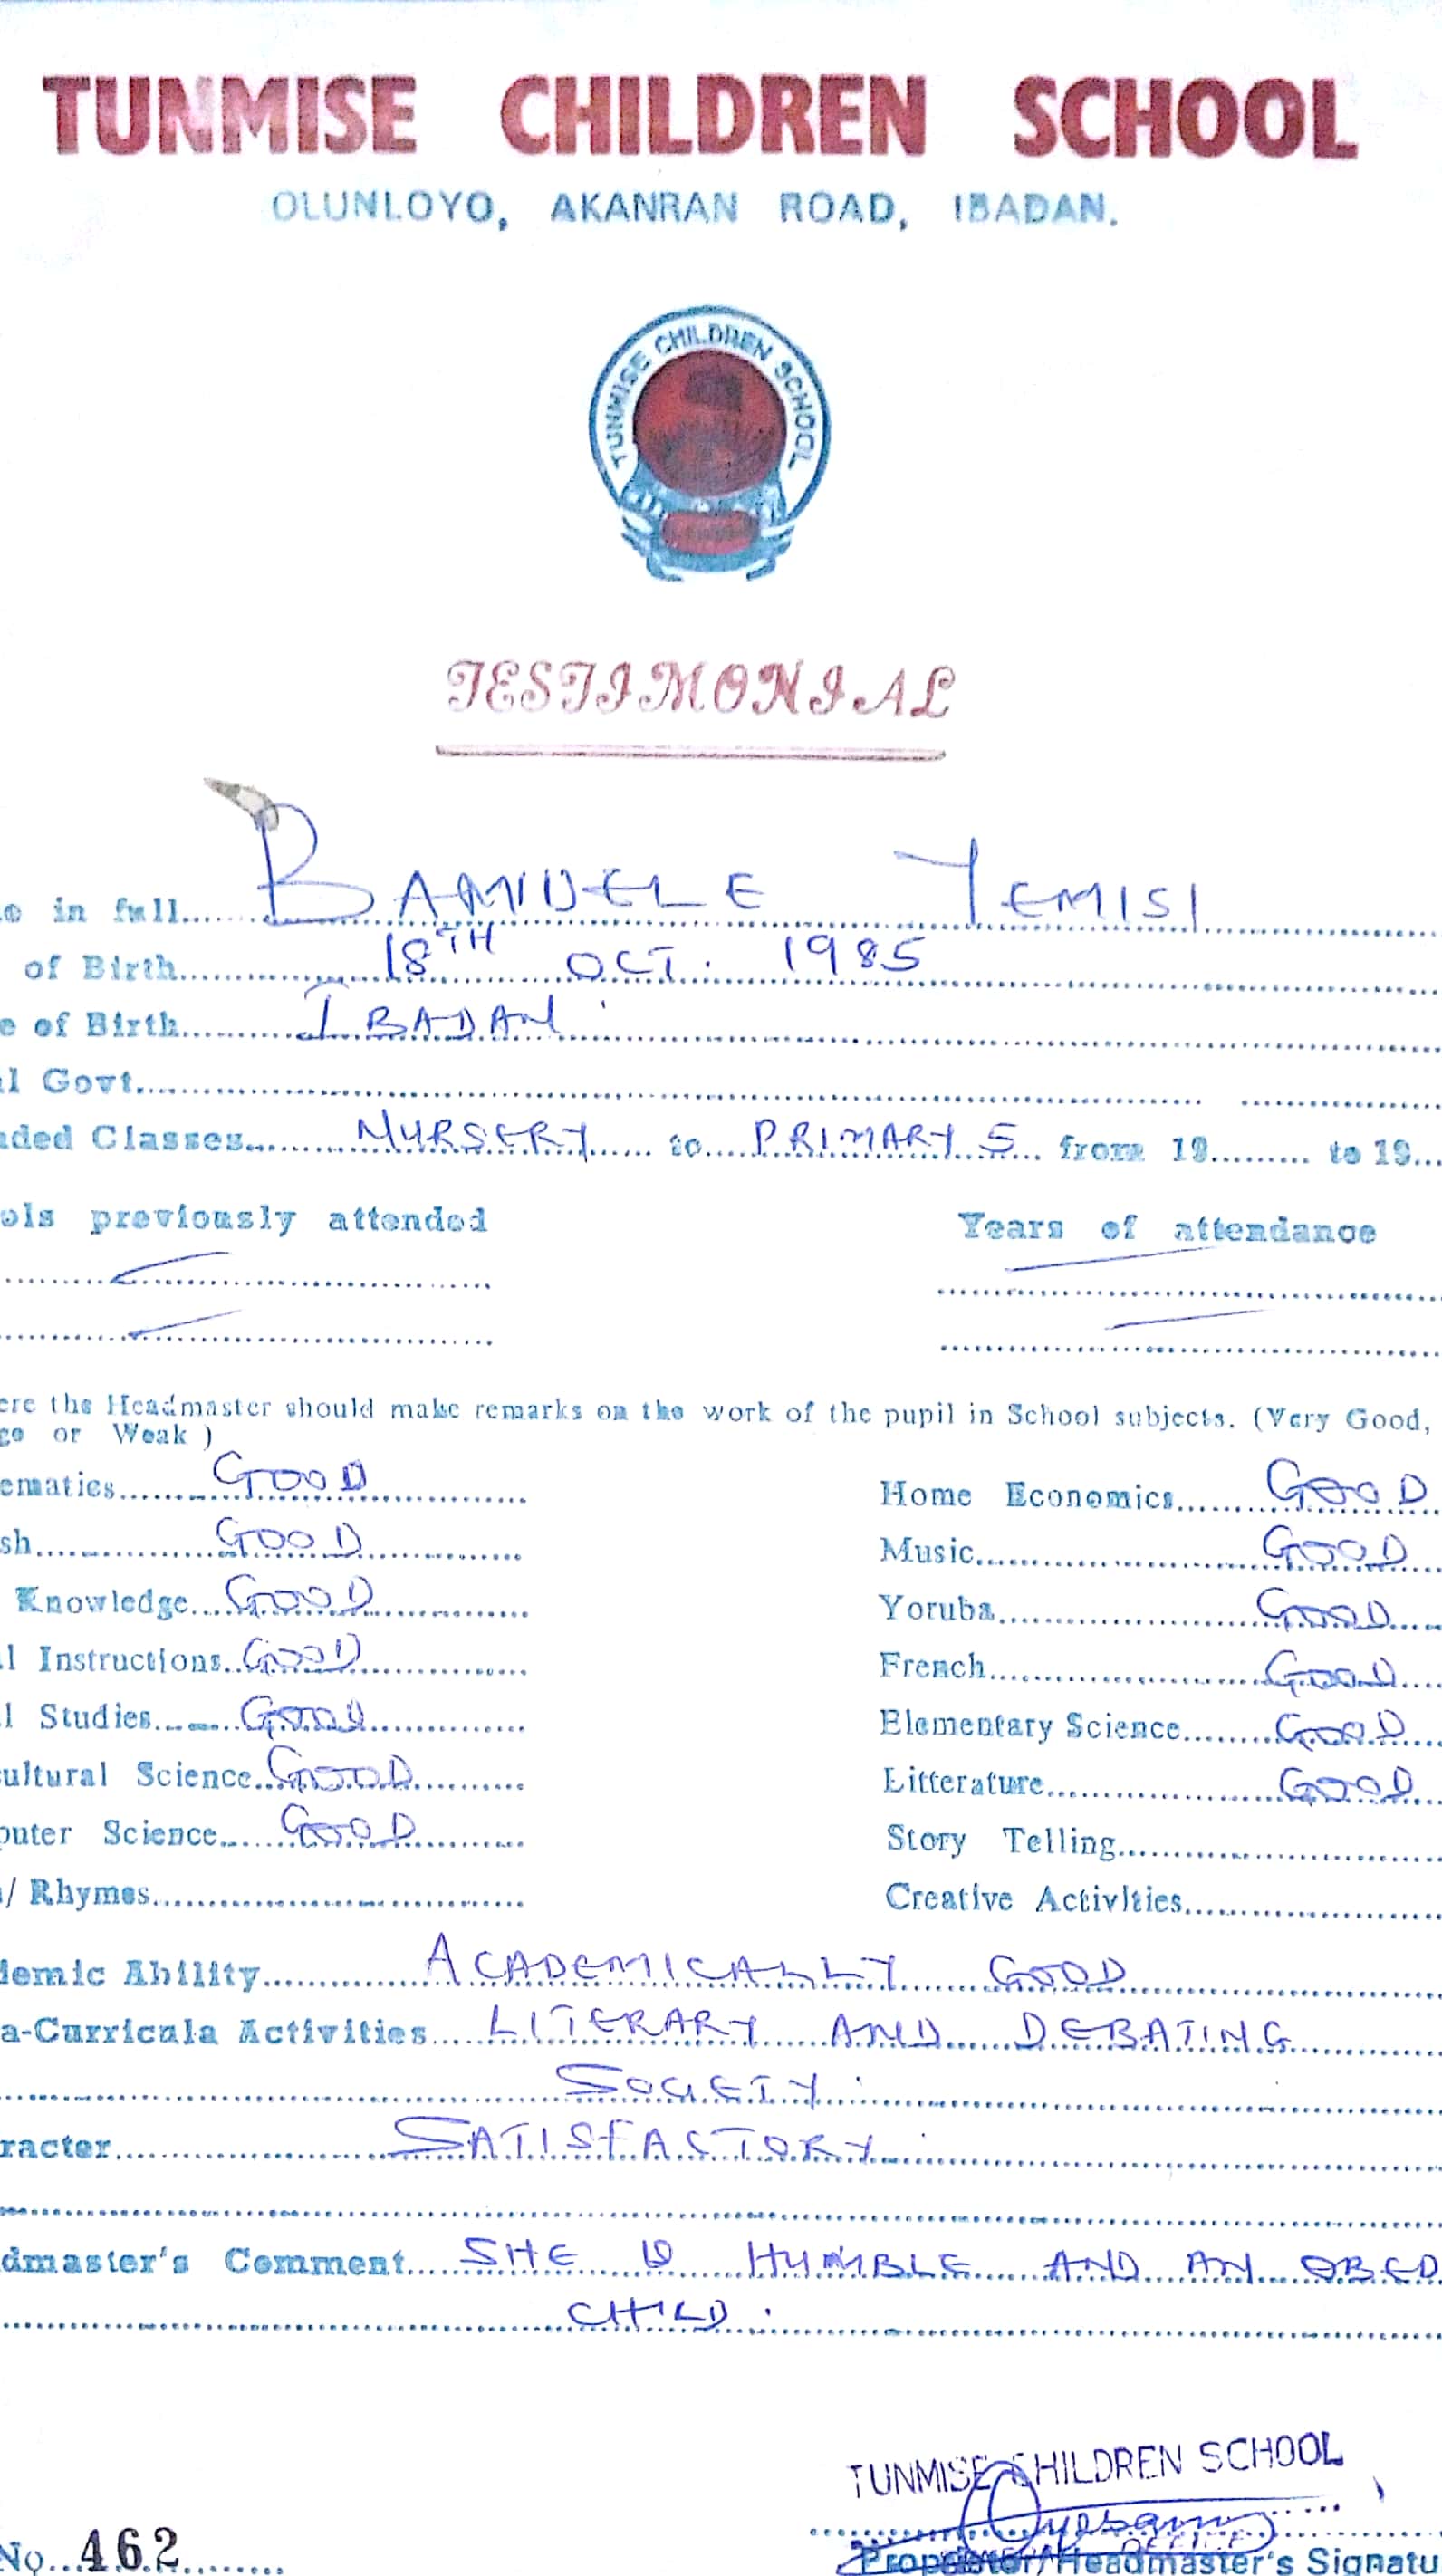 TUNMISE CHILDREN SCHOOL
OLUNLOYO, AKANRAN ROAD, IBADAN.
TUNMISE CHILDREN SCHOOL
TESTIMONIAL
e in full......BAMIDELE YEMISI
of Birth......18TH OCT. 1985
e of Birth......IBADAN.
l Govt......
ded Classes......NURSERY...... to......PRIMARY 5... from 19......... to 19...
ols previously attended Years of attendance
ere the Headmaster should make remarks on the work of the pupil in School subjects. (Very Good,
ge or Weak )
ematics......GOOD Home Economics......GOOD
sh......GOOD Music......GOOD
Knowledge...GOOD Yoruba......GOOD
l Instructions..GOOD French......GOOD
l Studies......GOOD Elementary Science......GOOD
ultural Science..GOOD Litterature......GOOD
puter Science......GOOD Story Telling......
/ Rhymes...... Creative Activities......
demic Ability......ACADEMICALLY GOOD
a-Curricula Activities....LITERARY AND DEBATING
SOCIETY.
racter......SATISFACTORY.
dmaster's Comment....SHE IS HUMBLE AND AN OBED
CHILD.
TUNMISE CHILDREN SCHOOL
No...462......
Proprietor/Headmaster's Signatu